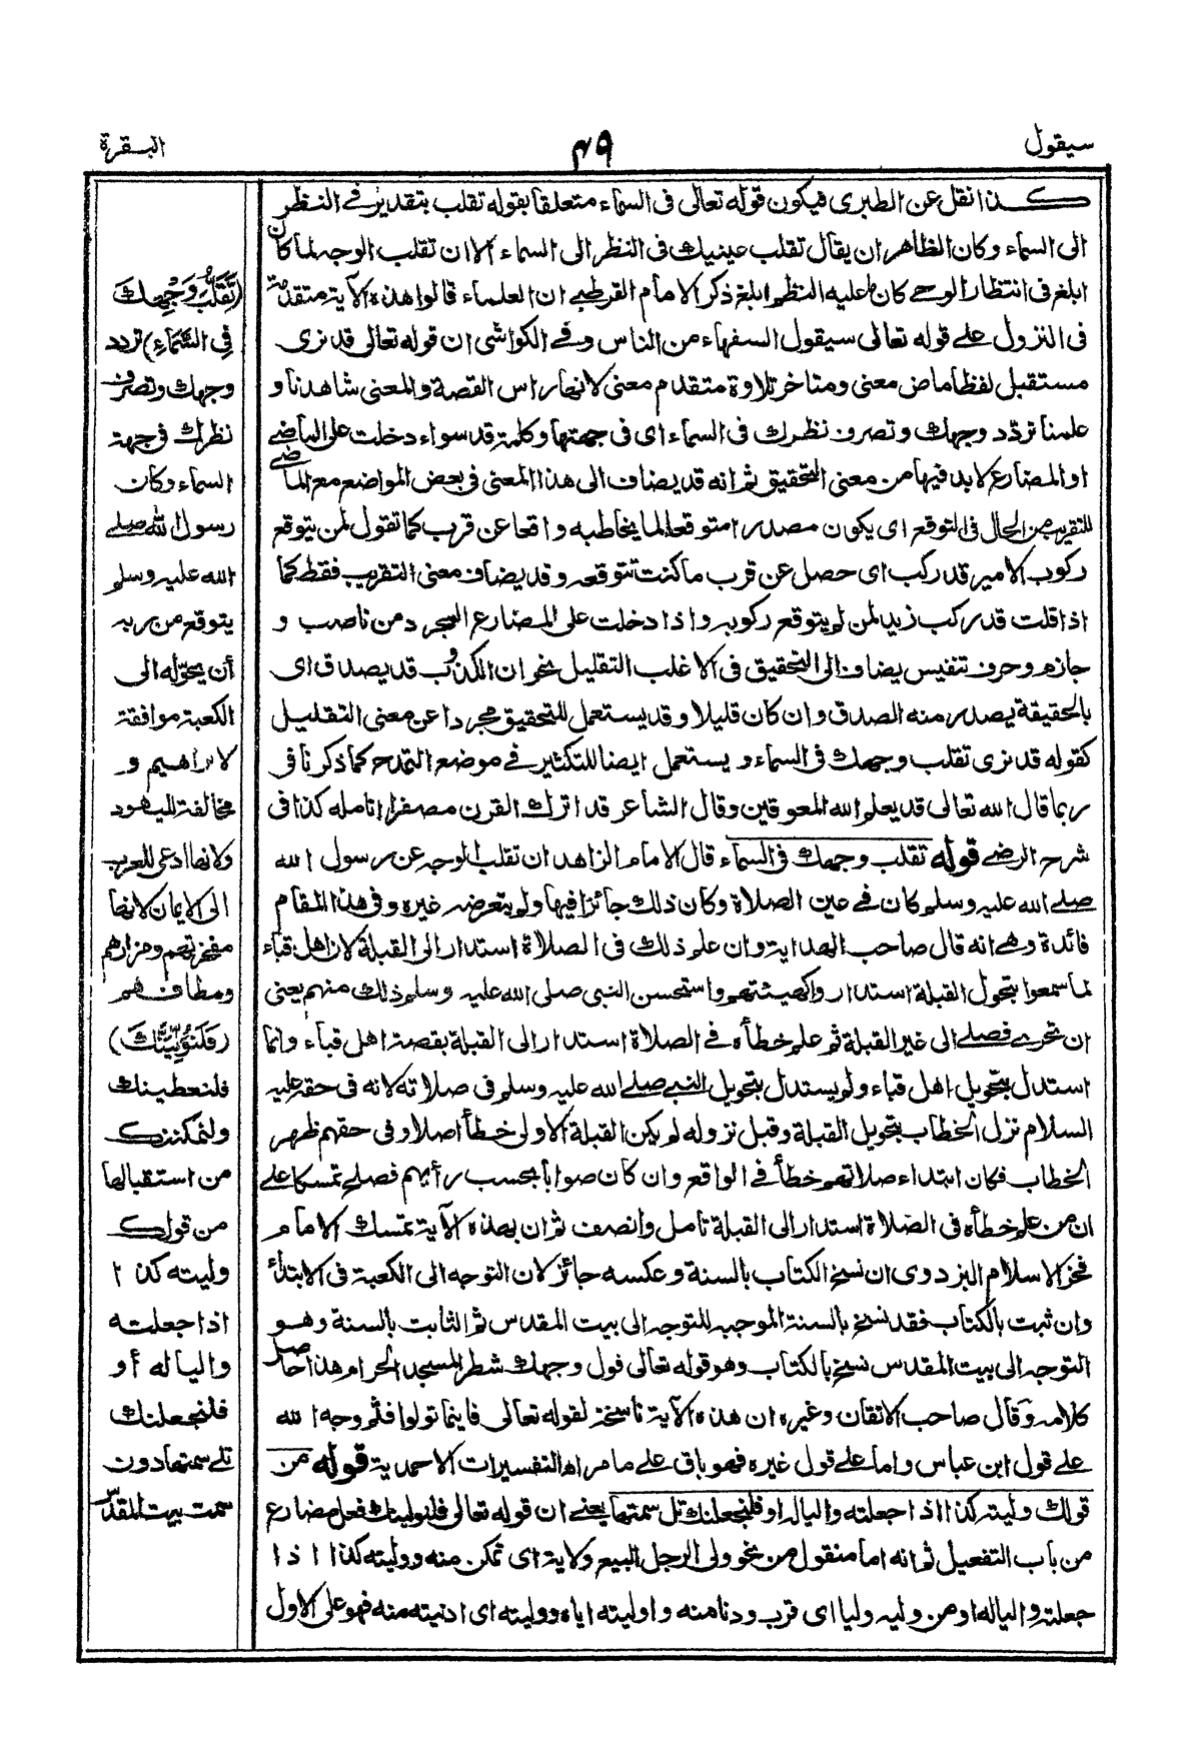 سيقول
٤٩
البقرة
كذا نقل عن الطبرى فيكون قوله تعالى فى السماء متعلقا بقوله تقلب بتقدير فى النظر
الى السماء وكان الظاهر ان يقال تقلب عينيك فى النظر الى السماء الا ان تقلب الوجه لما كان
ابلغ فى انتظار الوحى كان عليه النظم ابلغ ذكر الامام القرطبى ان العلماء قالوا هذه الآية متقدمة
فى النزول على قوله تعالى سيقول السفهاء من الناس وفى الكواشى ان قوله تعالى قد نرى
مستقبل لفظا ماض معنى ومتاخر تلاوة متقدم معنى لانها راس القصة والمعنى شاهدنا و
علمنا تردد وجهك وتصرف نظرك فى السماء اى فى جهتها وكلمة قد سواء دخلت على الماضى
او المضارع لا بد فيها من معنى التحقيق ثم انه قد يضاف الى هذا المعنى فى بعض المواضع مع الماضى
للتقريب من الحال فى التوقع اى يكون مصدرا متوقعا لما يخاطبه واقعا عن قرب كما تقول لمن يتوقع
ركوب الامير قد ركب اى حصل عن قرب ما كنت تتوقعه وقد يضاف معنى التقريب فقط كما
اذا قلت قد ركب زيد لمن لم يتوقع ركوبه واذا دخلت على المضارع المجرد من ناصب و
جازم وحرف تنفيس يضاف الى التحقيق فى الاغلب التقليل نحو ان الكذوب قد يصدق اى
بالحقيقة يصدر منه الصدق وان كان قليلا وقد يستعمل للتحقيق مجردا عن معنى التقليل
كقوله قد نرى تقلب وجهك فى السماء ويستعمل ايضا للتكثير فى موضع التمدح كما ذكرنا فى
ربما قال الله تعالى قد يعلم الله المعوقين وقال الشاعر قد اترك القرن مصفرا انامله كذا فى
شرح الرضى قوله تقلب وجهك فى السماء قال الامام الزاهد ان تقلب الوجه عن رسول الله
صلى الله عليه وسلم كان فى عين الصلاة وكان ذلك جائزا فيها ولم يتعرضه غيره وفى هذا المقام
فائدة وهى انه قال صاحب الهداية وان علم ذلك فى الصلاة استدار الى القبلة لان اهل قباء
لما سمعوا بتحول القبلة استداروا كهيئتهم واستحسن النبى صلى الله عليه وسلم ذلك منهم يعنى
ان تحرى فصلى الى غير القبلة ثم علم خطأه فى الصلاة استدار الى القبلة بقصة اهل قباء وانما
استدل بتحويل اهل قباء ولم يستدل بتحويل النبى صلى الله عليه وسلم فى صلاته لانه فى حقه عليه
السلام نزل الخطاب بتحويل القبلة وقبل نزوله لم يكن القبلة الاولى خطأ اصلا وفى حقهم ظهر
الخطاب فكان ابتداء صلاتهم خطأ فى الواقع وان كان صوابا بحسب رأيهم فصلح تمسكا على
ان من علم خطأه فى الصلاة استدار الى القبلة تامل وانصف ثم ان بهذه الآية تمسك الامام
فخر الاسلام البزدوى ان نسخ الكتاب بالسنة وعكسه جائز لان التوجه الى الكعبة فى الابتداء
وان ثبت بالكتاب فقد نسخ بالسنة الموجبة للتوجه الى بيت المقدس ثم الثابت بالسنة وهو
التوجه الى بيت المقدس نسخ بالكتاب وهو قوله تعالى فول وجهك شطر المسجد الحرام هذا حاصل
كلامه وقال صاحب الاتقان وغيره ان هذه الآية ناسخة لقوله تعالى فاينما تولوا فثم وجه الله
على قول ابن عباس واما على قول غيره فهو باق على ما مر اه التفسيرات الاحمدية قوله من
قولك وليته كذا اذا جعلته واليا له او فلنجعلنك تلى سمتها يعنى ان قوله تعالى فلنولينك فعل مضارع
من باب التفعيل ثم انه اما منقول من نحو ولى الرجل البيع ولاية اى تمكن منه ووليته كذا اذا
جعلته واليا له او من وليه وليا اى قرب ودنا منه واوليته اياه ووليته اى ادنيته منه فهو على الاول
(تَقَلُّبَ وَجْهِكَ
فِي السَّمَاءِ) تردد
وجهك وتصرف
نظرك فى جهة
السماء وكان
رسول الله صلى
الله عليه وسلم
يتوقع من ربه
أن يحوّله الى
الكعبة موافقة
لابراهيم و
مخالفة لليهود
ولانها ادعى للعرب
الى الايمان لانها
مفخرتهم ومزارهم
ومطافهم
(فَلَنُوَلِّيَنَّكَ)
فلنعطينك
ولنمكننك
من استقبالها
من قولك
وليته كذا
اذا جعلته
واليا له أو
فلنجعلنك
تلى سمتها دون
سمت بيت المقدس